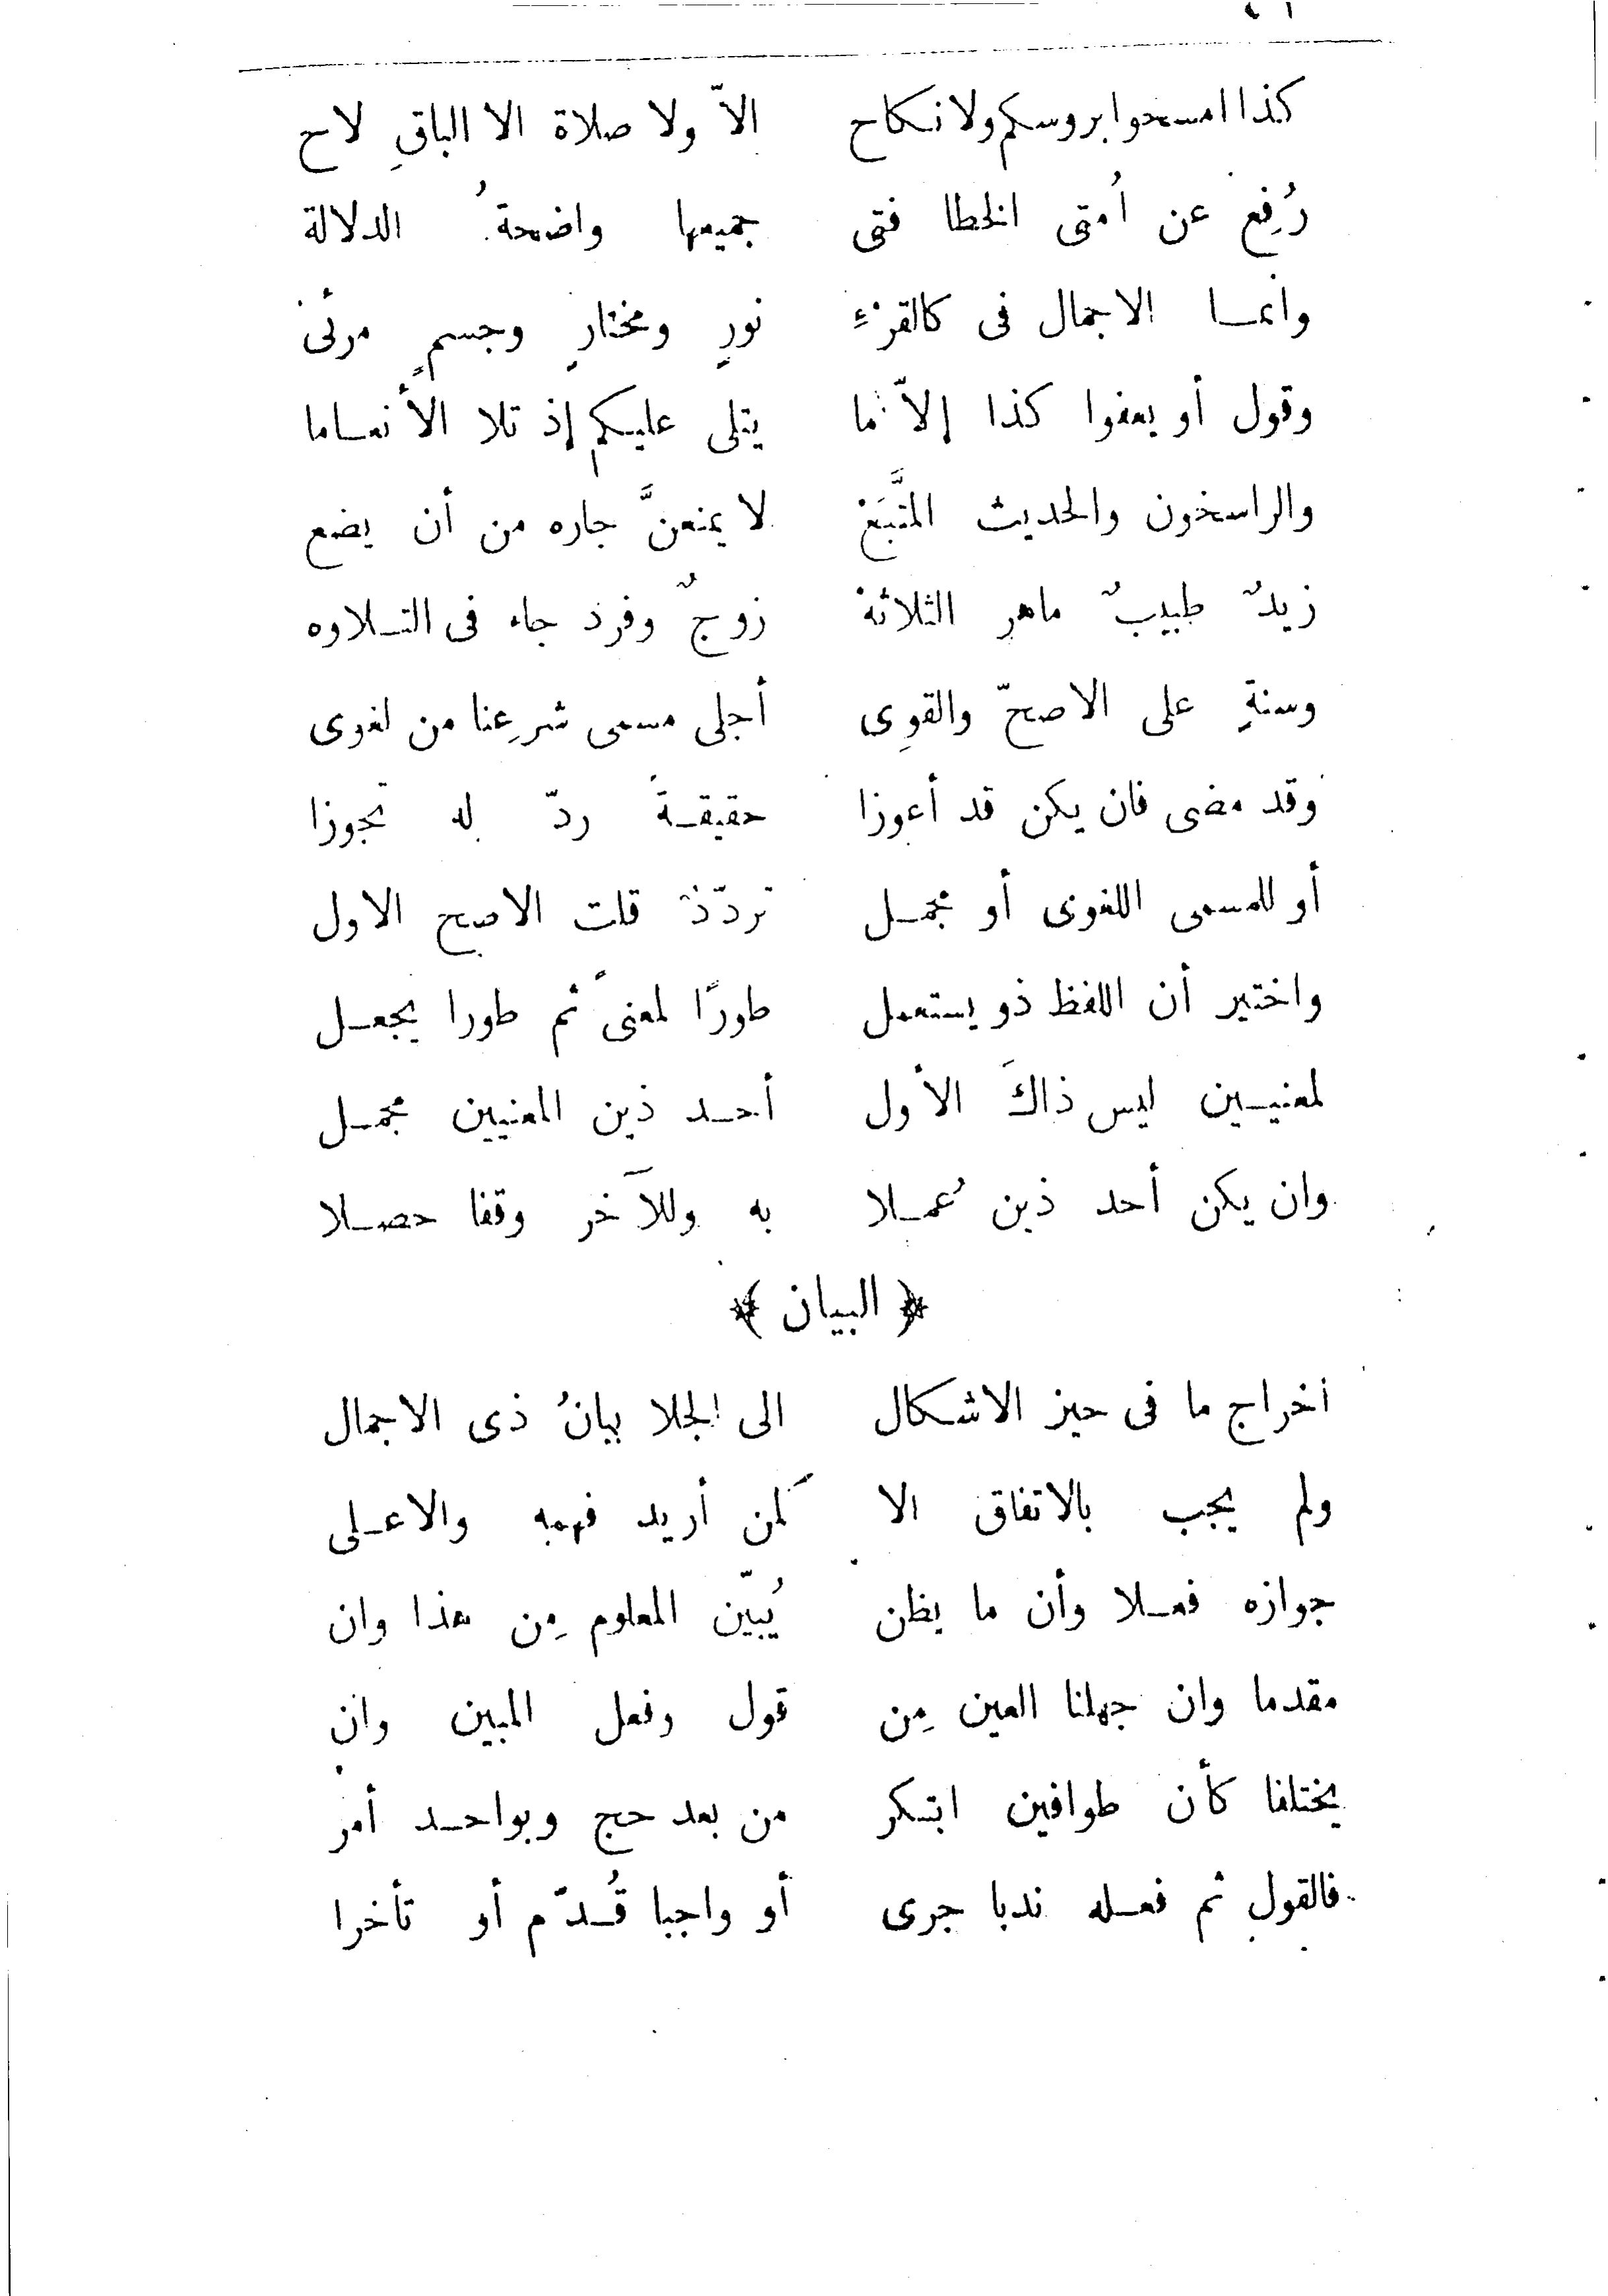 كذا امسحوا بروسكم ولا نكاح الاّ ولا صلاة الا الباقِى لاح
رُفِع عن اُمتى الخطا فتى جميعها واضحةُ الدلالة
وانما الاجمال فى كالقرْءِ نورٍ ومختارٍ وجسمٍ مرئى
وقول أو يعفوا كذا إلاّ ما يتلى عليكم إذ تلا الأنعاما
والراسخون والحديث المتَّبَعْ لا يمنعنَّ جاره من أن يضع
زيدٌ طبيبٌ ماهر الثلاثة زوجٌ وفرد جاء فى التلاوه
وسنةٍ على الاصحّ والقوِى أجلى مسمى شرعِنا من لغوى
وقد مضى فان يكن قد أعوزا حقيقةً ردّ له تجوزا
أو للمسمى اللغوى أو مجمل تردّدٌ قلت الاصح الاول
واختير أن اللفظ ذو يستعمل طورًا لمعنىً ثم طورا يجعل
لمعنيين ليس ذاكَ الأول أحد ذين المعنيين مجمل
وان يكن أحد ذين عُملا به وللآخر وقفا حصلا
﴿ البيان ﴾
اخراج ما فى حيز الاشكال الى الجلا بيانُ ذى الاجمال
ولم يجب بالاتفاق الا لمن أريد فهمه والاعلى
جوازه فعلا وأن ما يظن يُبيّن المعلوم مِن هذا وان
مقدما وان جهلنا العين مِن قول وفعل المبين وان
يختلفا كأن طوافين ابتكر من بعد حج وبواحد أمر
فالقول ثم فعله ندبا جرى أو واجبا قُدّم أو تأخرا